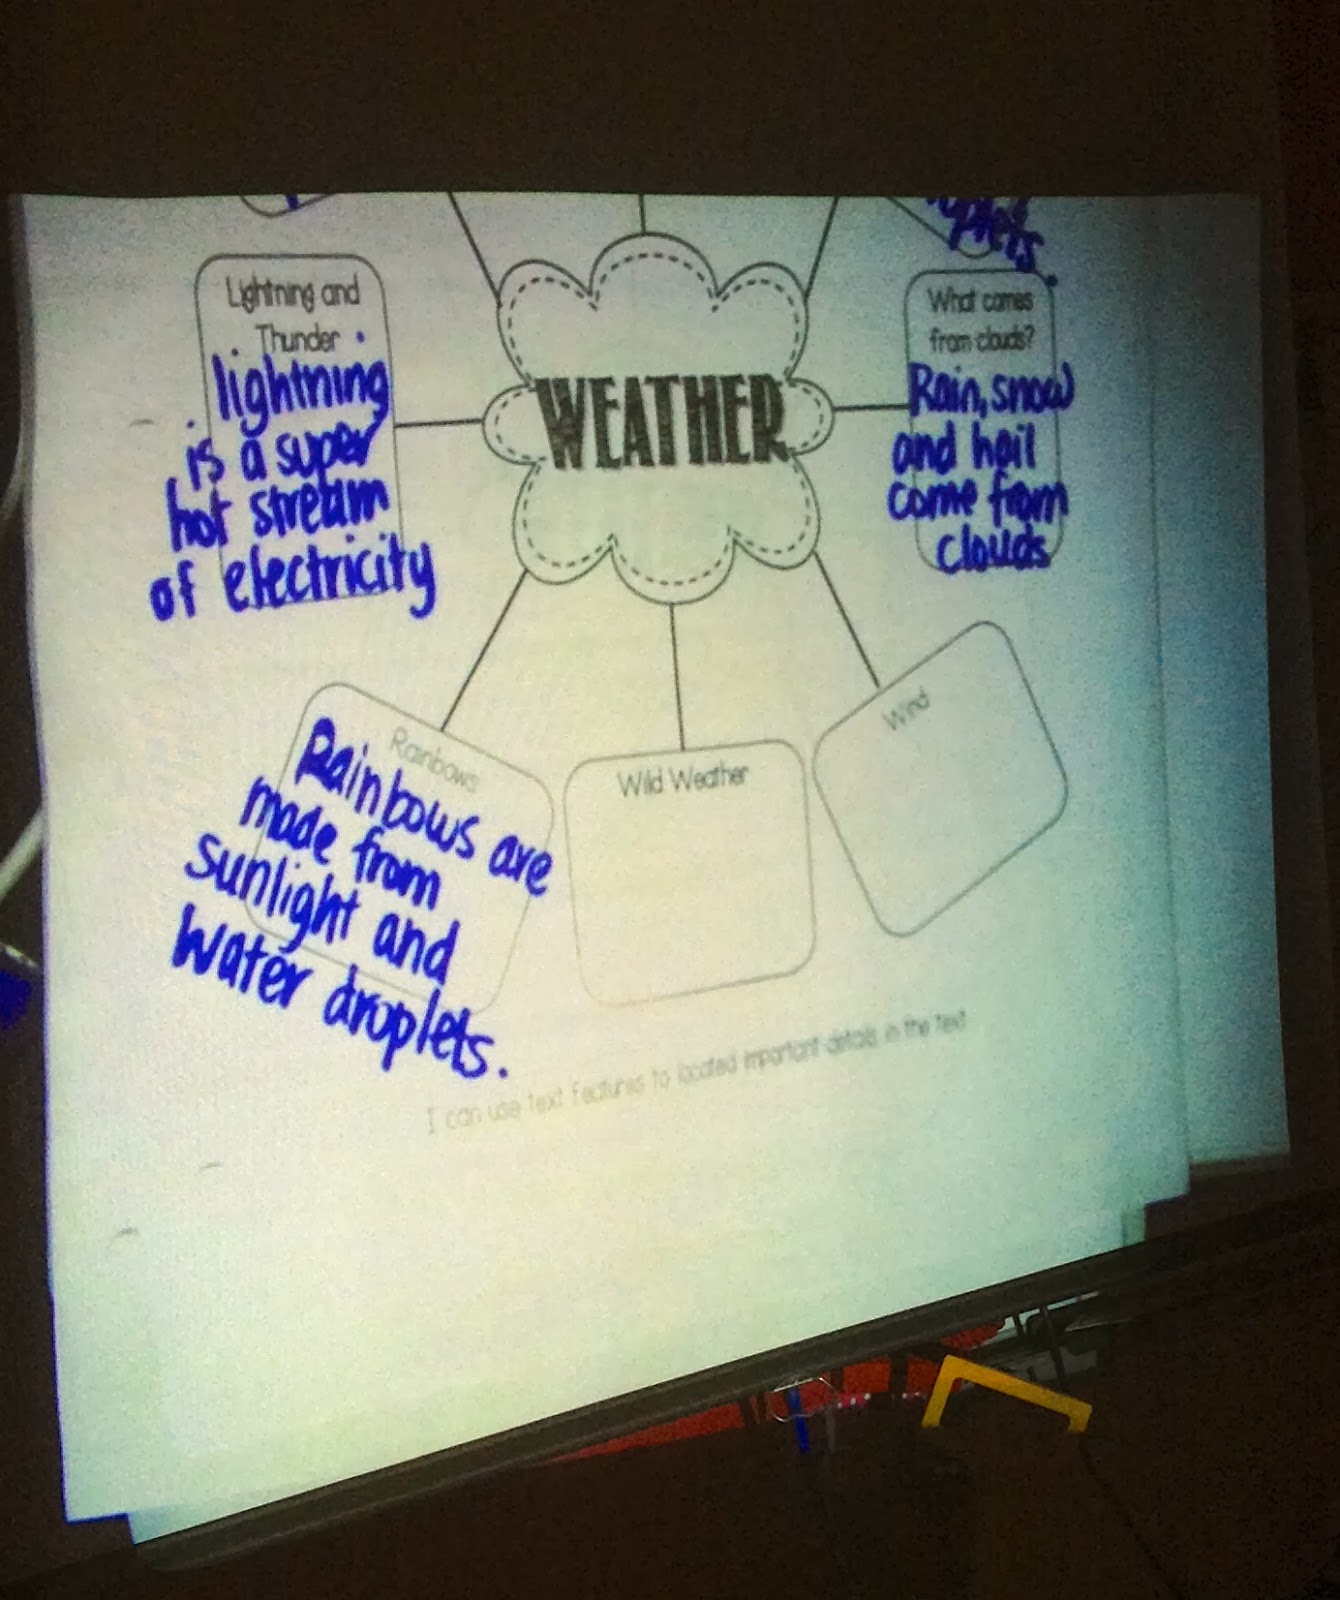 Lightning and
Thunder
lightning
is a super
hot stream
of electricity
WEATHER
What comes
from clouds?
Rain, snow
and hail
come from
clouds
Rainbows
Rainbows are
made from
sunlight and
water droplets.
Wild Weather
Wind
I can use text features to located important details in the text